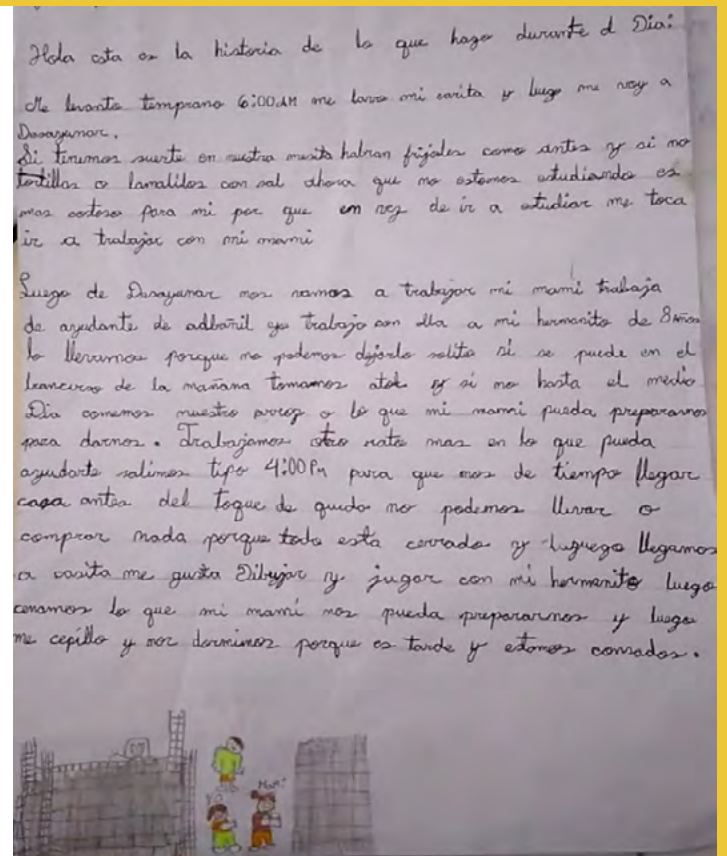 Hola esta es la historia de lo que hago durante el Dia:
Me levanto temprano 6:00AM me lavo mi carita y luego me voy a
Desayunar.
Si tenemos suerte en nuestra mesita habran frijoles como antes y si no
tortillas o tamalitos con sal ahora que no estamos estudiando es
mas costoso para mi por que en vez de ir a estudiar me toca
ir a trabajar con mi mami
Luego de Desayunar nos vamos a trabajar mi mami trabaja
de ayudante de adbañil yo trabajo con ella a mi hermanito de 8 Años
lo llevamos porque no podemos dejarlo solito si se puede en el
trancurso de la mañana tomamos atol y si no hasta el medio
Dia comemos nuestro arroz o lo que mi mami pueda prepararnos
para darnos. Trabajamos otro rato mas en lo que pueda
ayudarte salimos tipo 4:00Pm para que nos de tiempo llegar
casa antes del toque de quedo no podemos llevar o
comprar nada porque todo esta cerrado y luguego llegamos
a casita me gusta Dibujar y jugar con mi hermanito luego
cenamos lo que mi mami nos pueda prepararnos y luego
me cepillo y nos dormimos porque es tarde y estamos cansados.
Yo
Mami